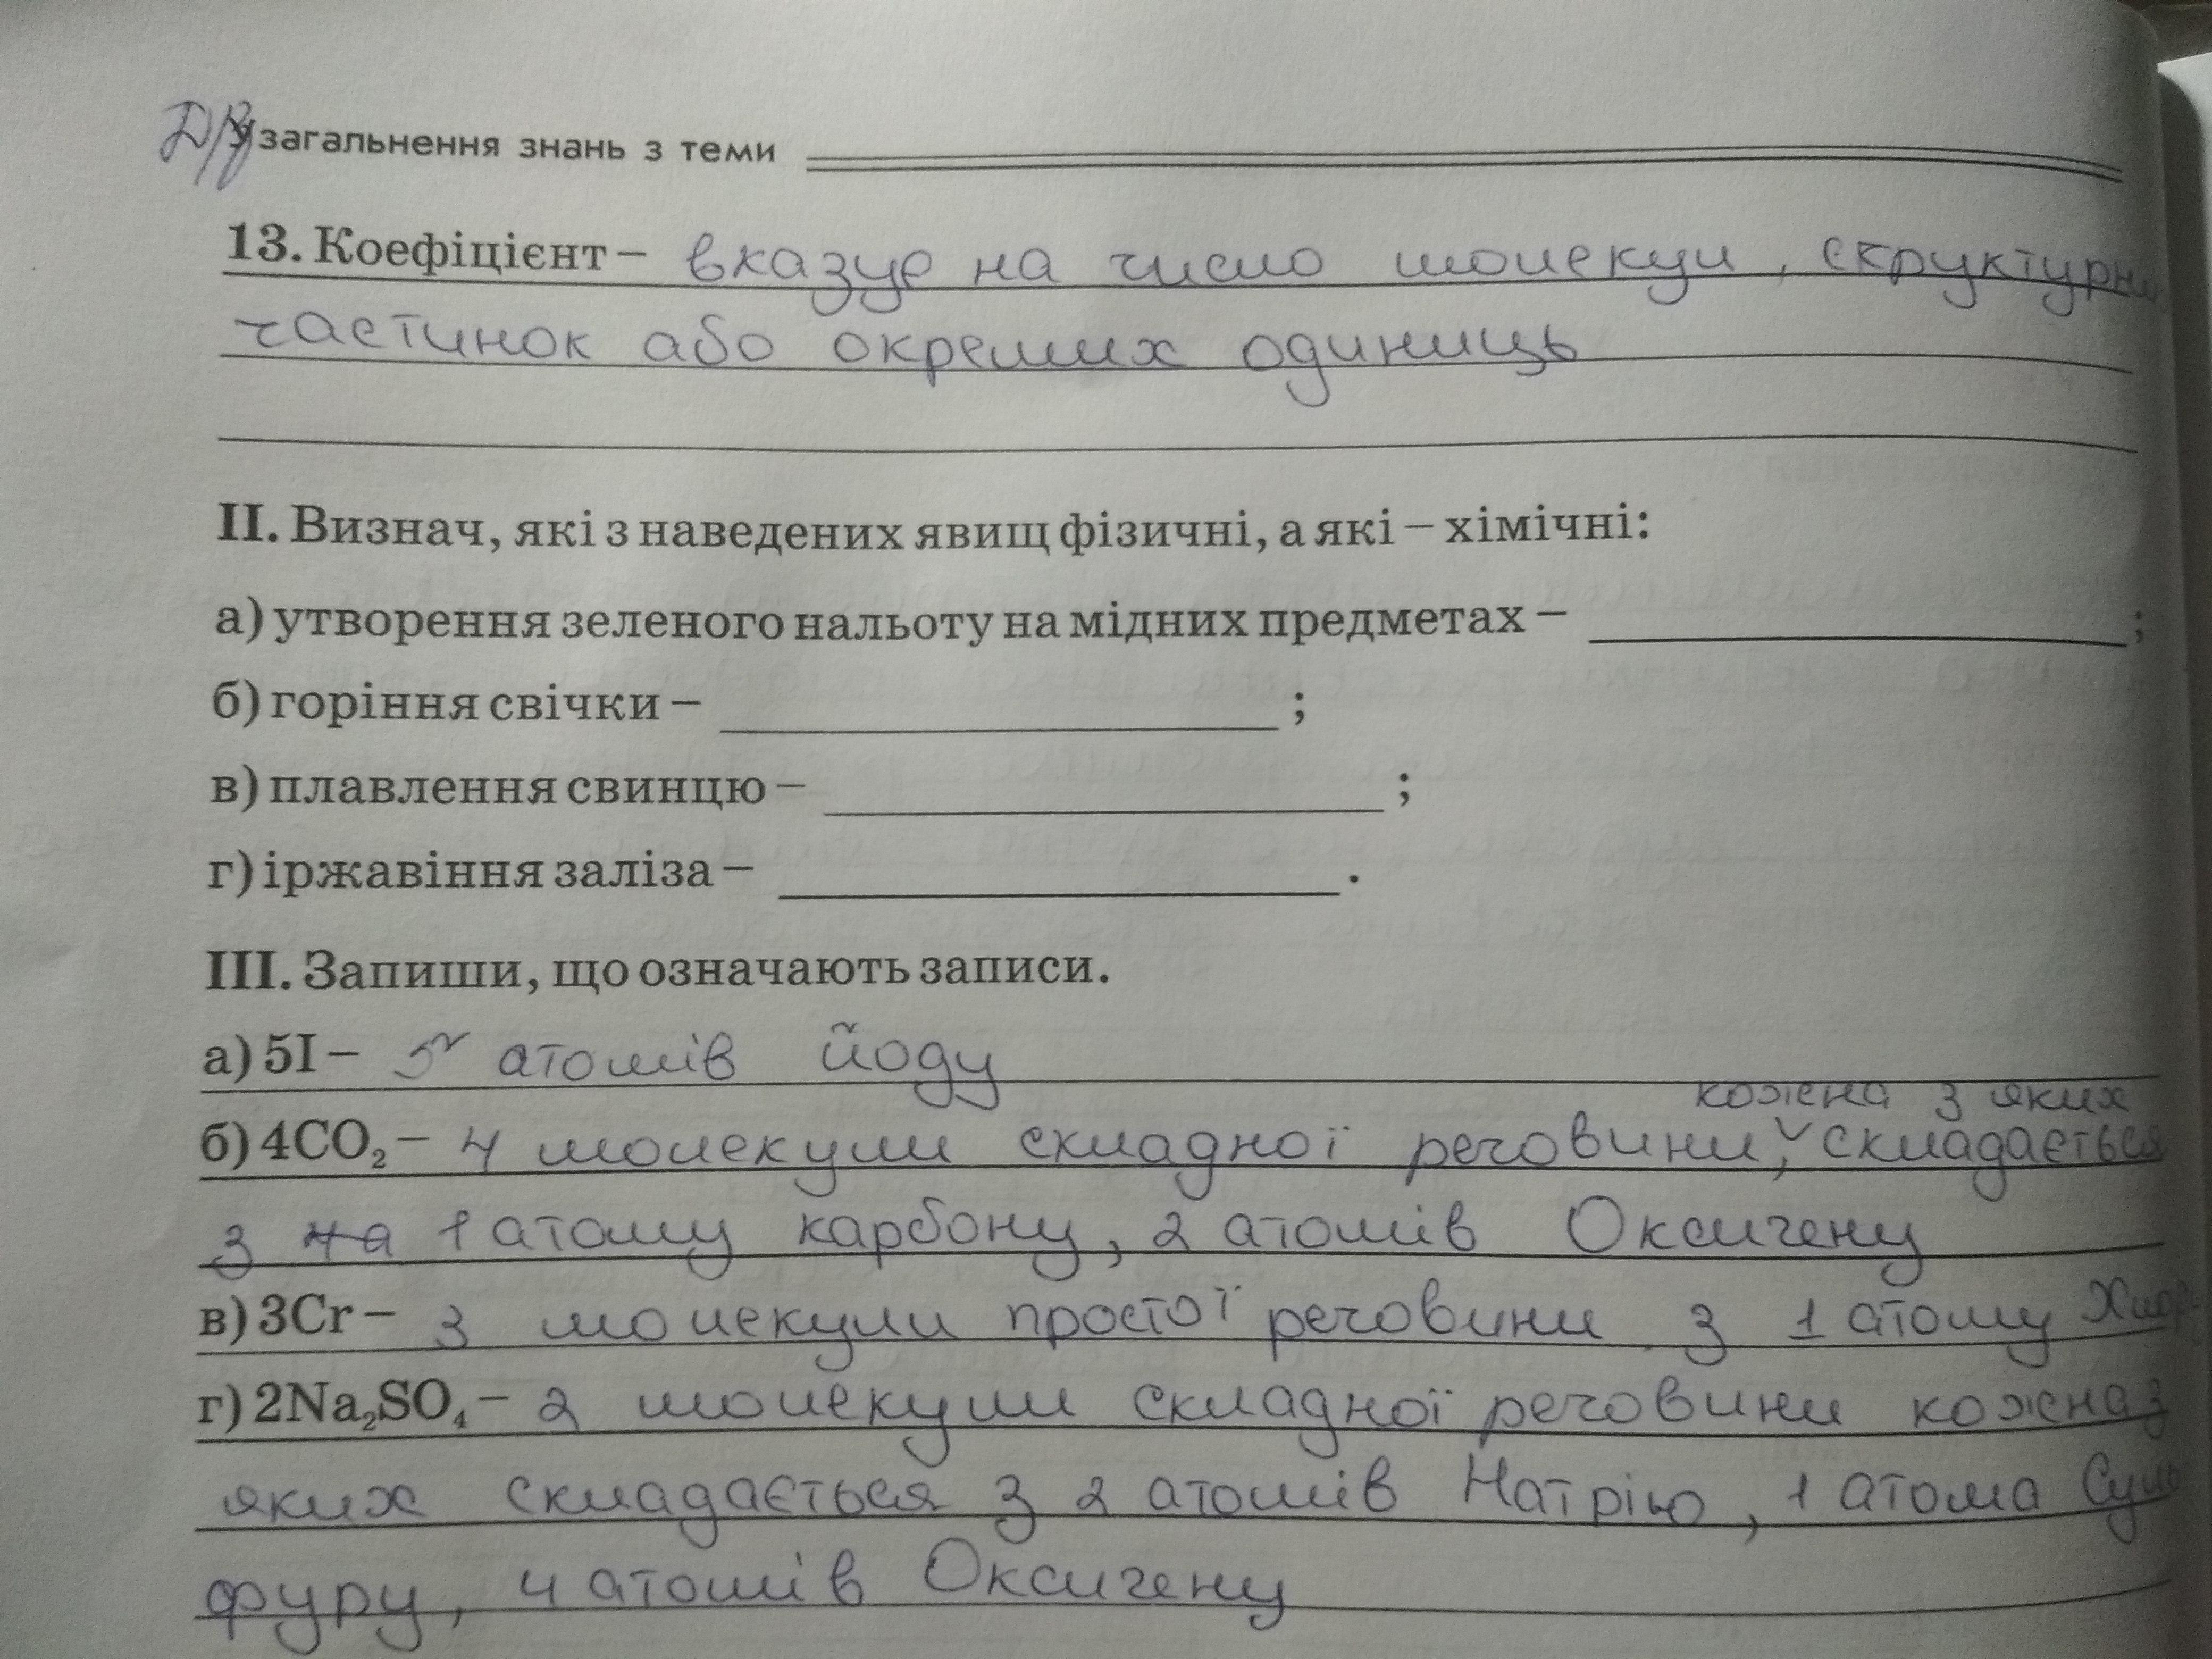 Д/р Узагальнення знань з теми
13. Коефіцієнт – вказує на число молекул, структурни
частинок або окремих одиниць
II. Визнач, які з наведених явищ фізичні, а які – хімічні:
а) утворення зеленого нальоту на мідних предметах – ;
б) горіння свічки – ;
в) плавлення свинцю – ;
г) іржавіння заліза – .
III. Запиши, що означають записи.
а) 5I – 5 атомів йоду
кожна з яких
б) 4CO₂ – 4 молекули складної речовини, складається
з на 1 атому карбону, 2 атомів Оксигену
в) 3Cr – 3 молекули простої речовини з 1 атому
г) 2Na₂SO₄ – 2 молекули складної речовини кожна з
яких складається з 2 атомів Натрію, 1 атома Суль
фуру, 4 атомів Оксигену